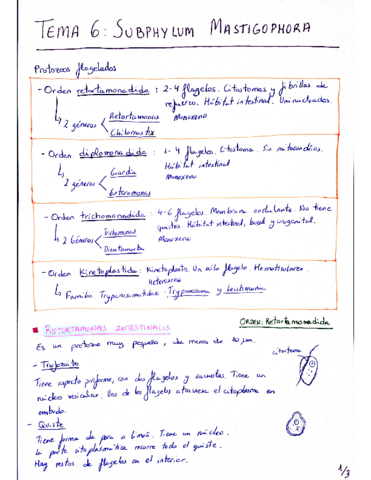 TEMA 6: SUBPHYLUM MASTIGOPHORA
Protozoos flagelados
- Orden retortamonadida : 2-4 flagelos. Citostomas y fibrillas de
refuerzo. Hábitat intestinal. Uninucleados.
Monoxeno
2 géneros
Retortamonas
Chilomastix
- Orden diplomonadida : 1-4 flagelos. Citostoma. Sin mitocondrias.
Hábitat intestinal
Monoxeno
2 géneros
Giardia
Enteromonas
- Orden trichomonadida : 4-6 flagelos. Membrana ondulante. No tiene
quistes. Hábitat intestinal, bucal y urogenital.
Monoxeno
2 Géneros
Trichomonas
Dientamoeba
- Orden Kinetoplastida : Kinetoplasto. Un sólo flagelo. Hemotisulares.
Heteroxeno
Familia Trypanosomatidae : Trypanosoma y Leishmania
RETORTAMONAS INTESTINALIS
ORDEN: Retortamonadida
Es un protozoo muy pequeño, de menos de 10 µm.
citostoma
- Trofozoito
Tiene aspecto piriforme, con dos flagelos y vacuolas. Tiene un
núcleo vesicular. Uno de los flagelos atraviesa el citoplasma en
- Quiste
Tiene forma de pera o limón. Tiene un núcleo.
La parte citoplasmática recorre todo el quiste.
Hay restos de flagelos en el interior.
1/3